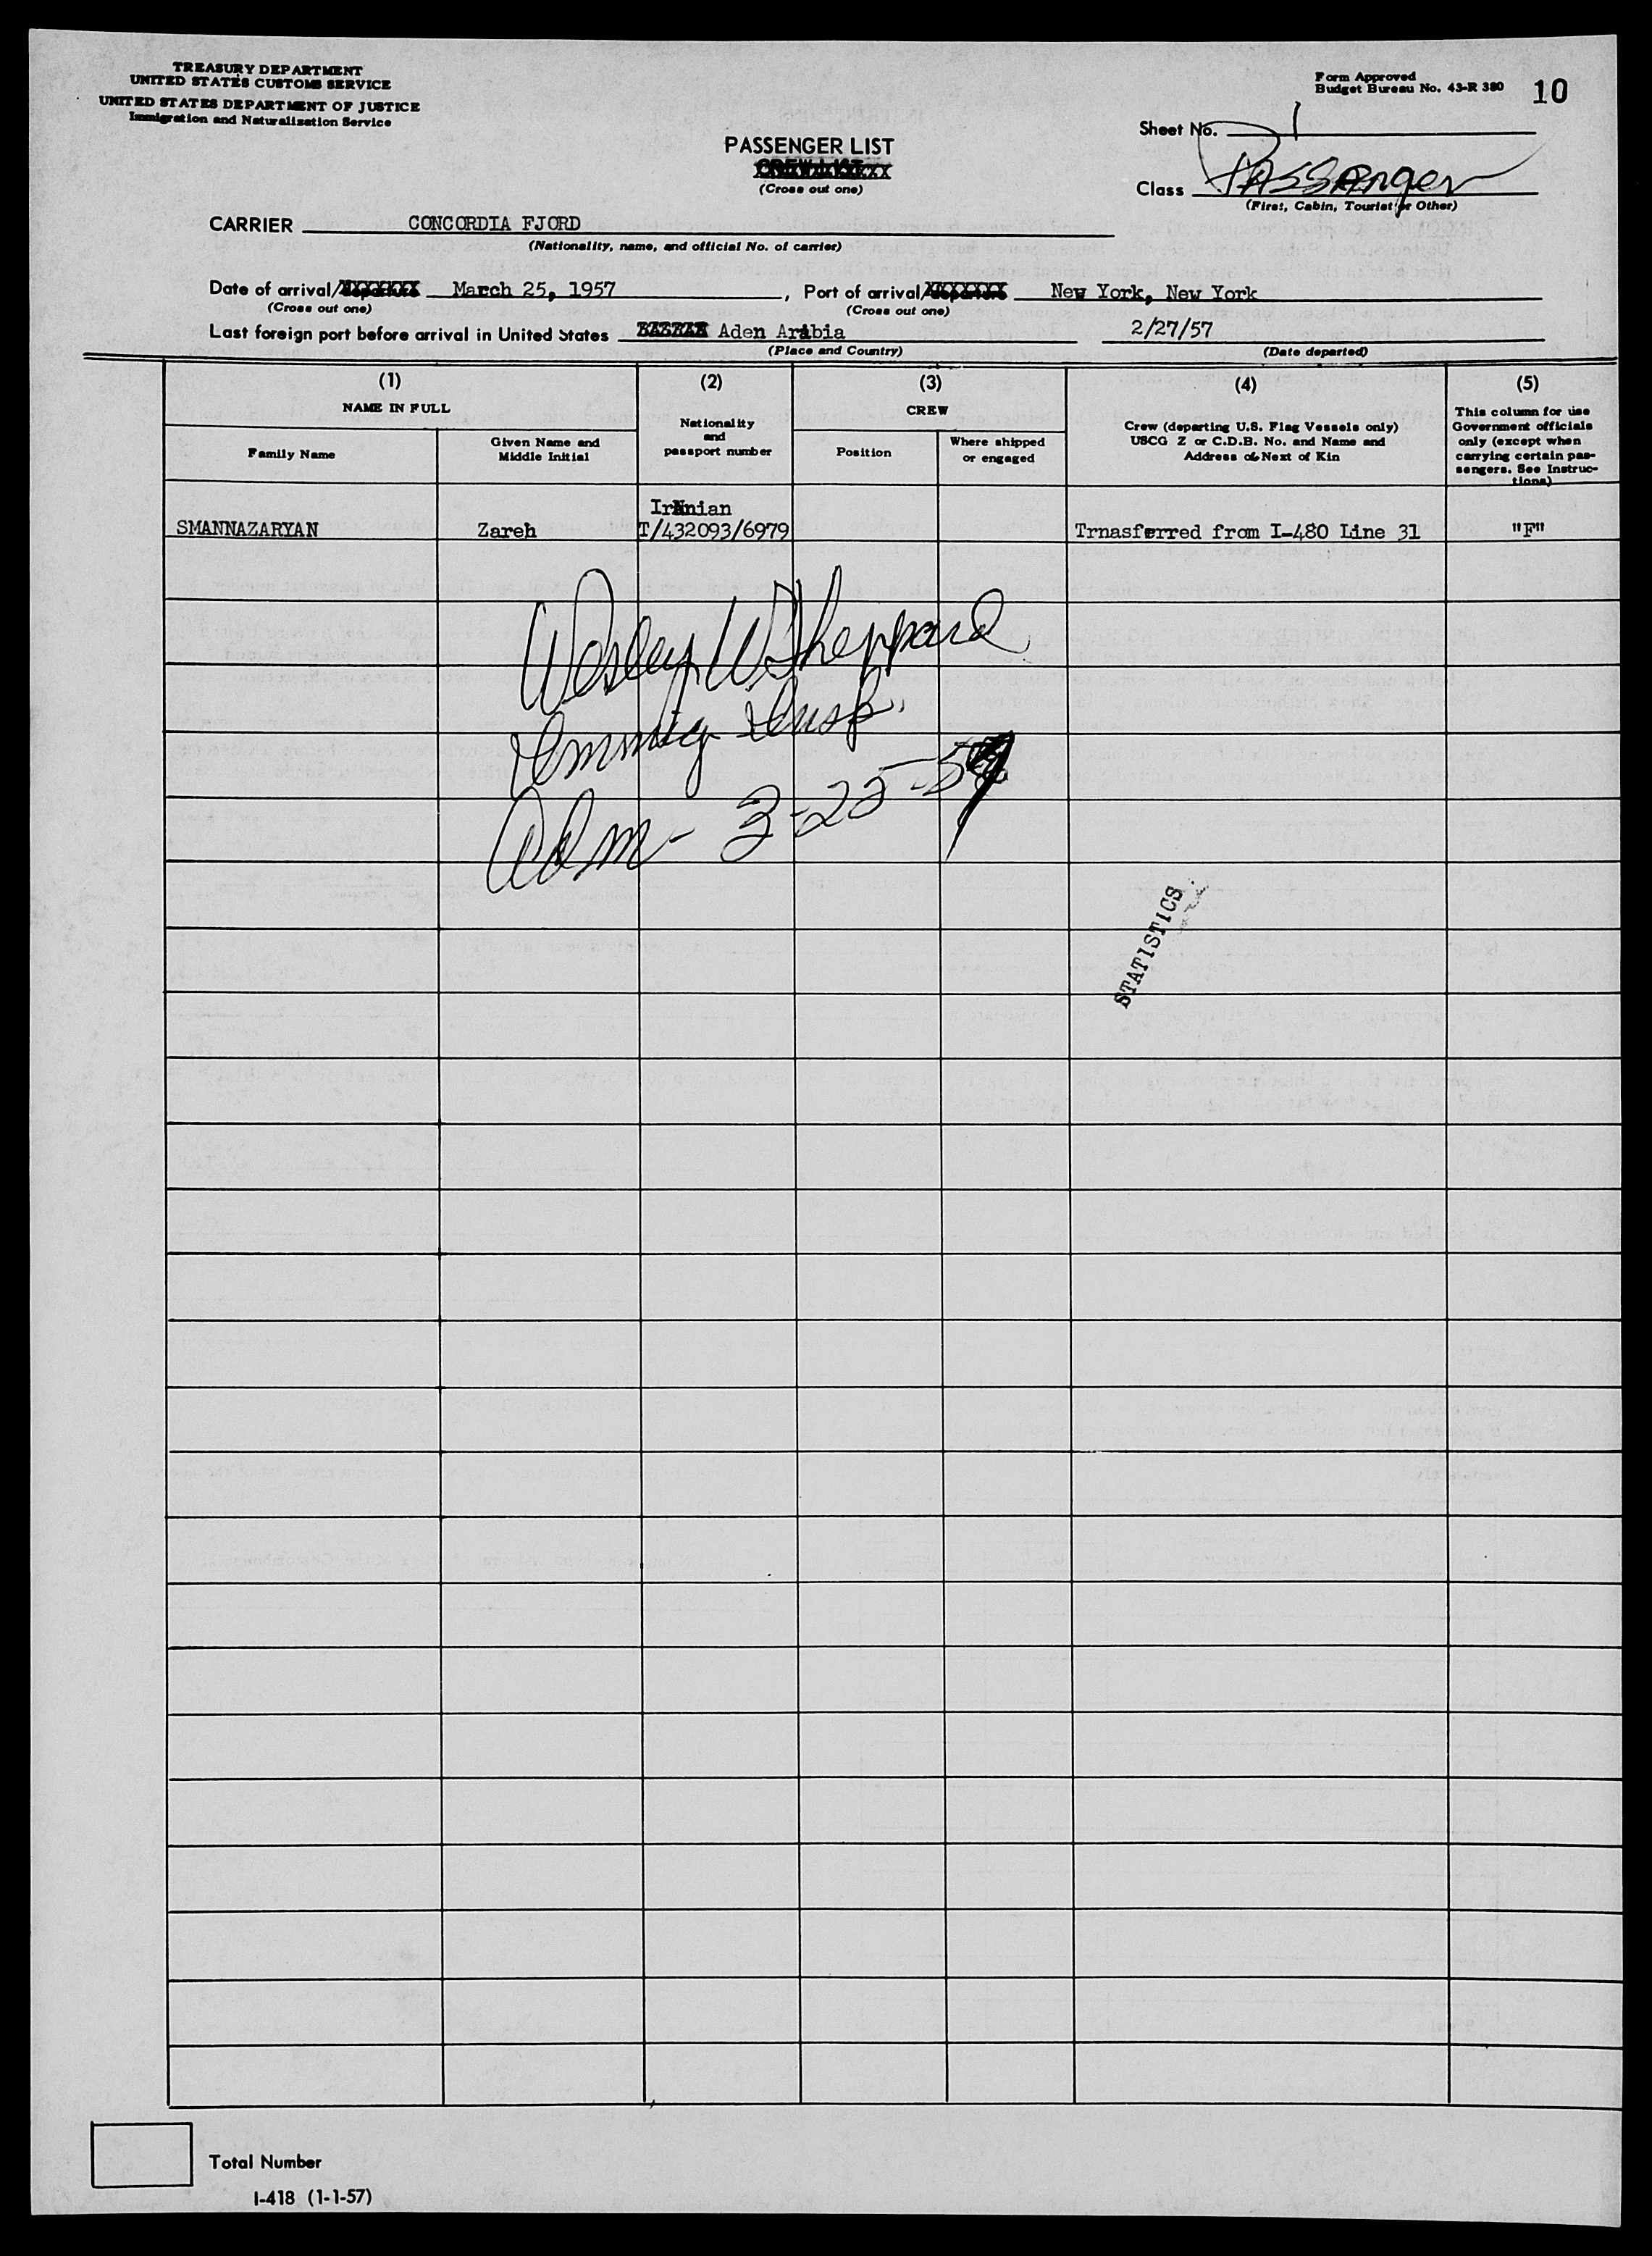 TREASURY DEPARTMENT
UNITED STATES CUSTOMS SERVICE
UNITED STATES DEPARTMENT OF JUSTICE
Immigration and Naturalization Service
Form Approved
Budget Bureau No. 43-R 380
10
Sheet No. 1
PASSENGER LIST
CREW LIST
(Cross out one)
Class Passenger
(First, Cabin, Tourist or Other)
CARRIER CONCORDIA FJORD
(Nationality, name, and official No. of carrier)
Date of arrival/departure March 25, 1957, Port of arrival/departure New York, New York
(Cross out one) (Cross out one)
Last foreign port before arrival in United States Aden Arabia 2/27/57
(Place and Country) (Date departed)
(1) (2) (3) (4) (5)
NAME IN FULL
Family Name
Given Name and
Middle Initial
Nationality
and
passport number
CREW
Position
Where shipped
or engaged
Crew (departing U.S. Flag Vessels only)
USCG Z or C.D.B. No. and Name and
Address of Next of Kin
This column for use
Government officials
only (except when
carrying certain pas-
sengers. See Instruc-
tions)
Iranian
SMANNAZARYAN Zareh T/432093/6979 Trnasferred from I-480 Line 31 "F"
Wesley W Sheppard
Immig Insp.
Adm - 3-25-57
STATISTICS
Total Number
I-418 (1-1-57)